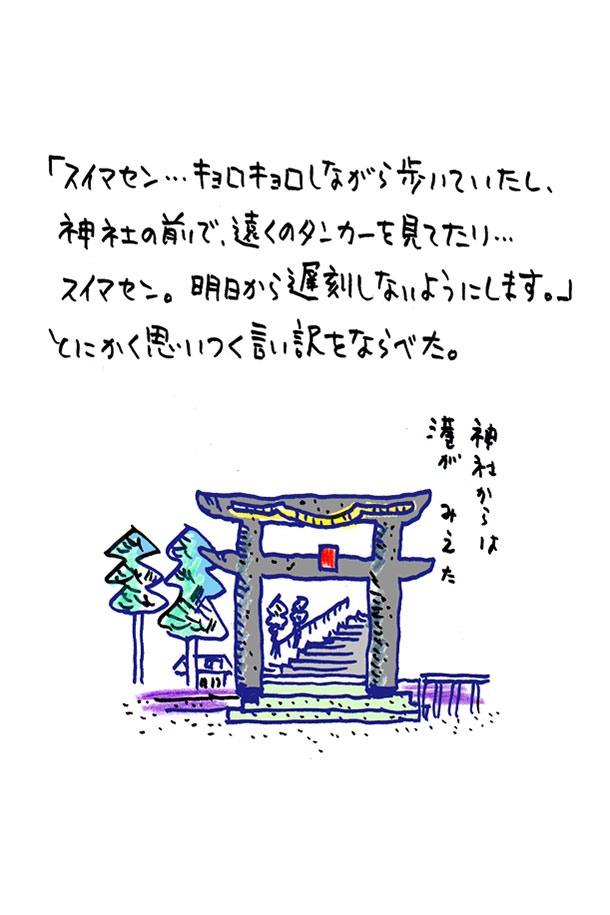 「スイマセン…キョロキョロしながら歩いていたし、
神社の前で、遠くのタンカーを見てたり…
スイマセン。明日から遅刻しないようにします。」
とにかく思いつく言い訳をならべた。
神社からは
港が みえた